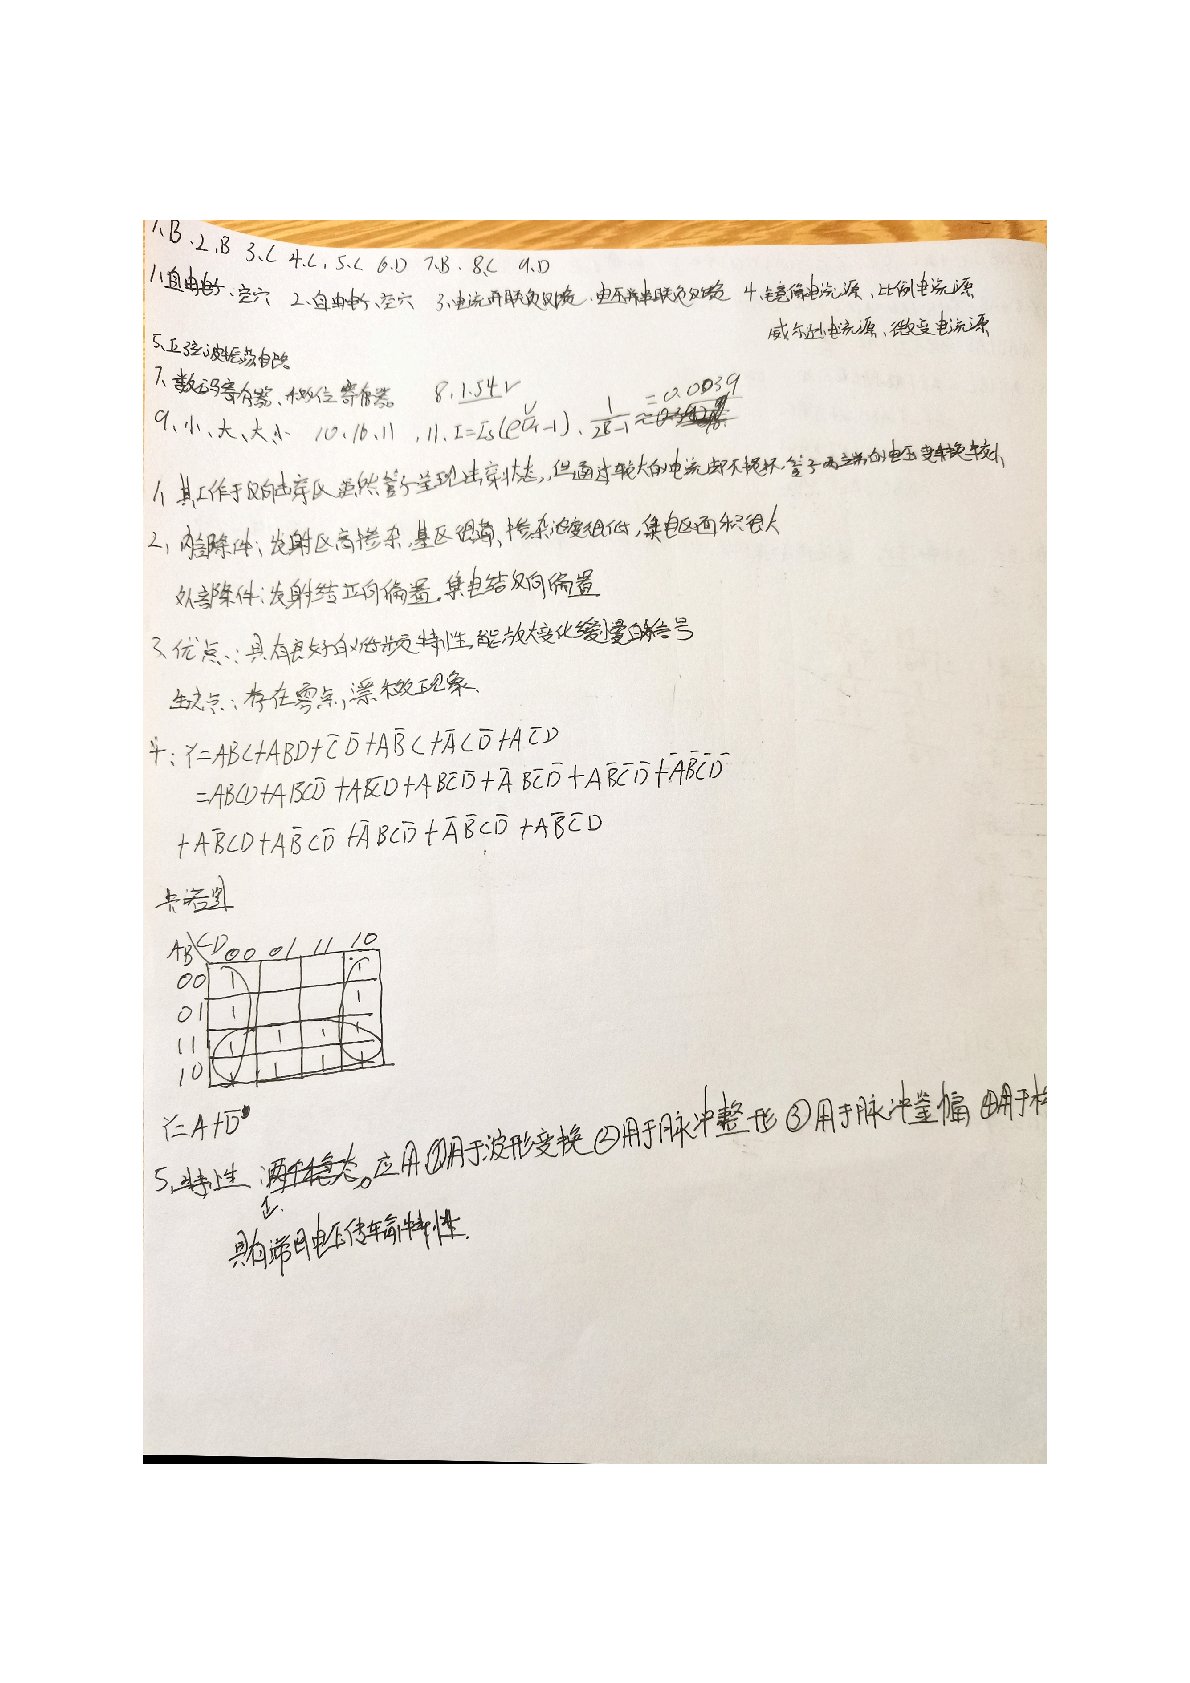 1、B、2、B 3、C 4、C、5、C 6、D 7、B、8、C 9、D
1、自由电子、空穴 2、自由电子、空穴 3、电流并联负反馈、电压串联负反馈 4、镜像电流源、比例电流源
威尔逊电流源、微变电流源
5、正弦波振荡电路
7、数码寄存器、移位寄存器 8、1.54V
9、小、大、大、小 10、16、11 11、I=Is(e^{U/UT}-1)、 1/(2^8-1) ≈ =0.0039
1、其工作于反向击穿区 虽然管子呈现击穿状态，但通过较大的电流却不损坏、管子两端的电压变换较小
2、内部条件：发射区高掺杂，基区很薄，掺杂浓度很低，集电区面积很大
外部条件：发射结正向偏置，集电结反向偏置
3、优点：具有良好的低频特性，能放大变化缓慢的信号
缺点：存在零点，漂移现象、
4：Y=ABC+ABD+C̄D̄+AB̄C+ĀCD̄+AC̄D
=ABCD+ABCD̄+ABC̄D+ABC̄D̄+ĀBC̄D̄+AB̄C̄D̄+ĀB̄C̄D̄
+AB̄CD+AB̄CD̄+ĀBCD̄+ĀB̄CD̄+AB̄C̄D
卡诺图
AB\CD 00 01 11 10
00 1 1
01 1 1
11 1 1 1 1
10 1 1 1 1
Y=A+D̄
5、特性 应用①用于波形变换②用于脉冲整形③用于脉冲鉴幅④用于
具有滞回电压传输特性.